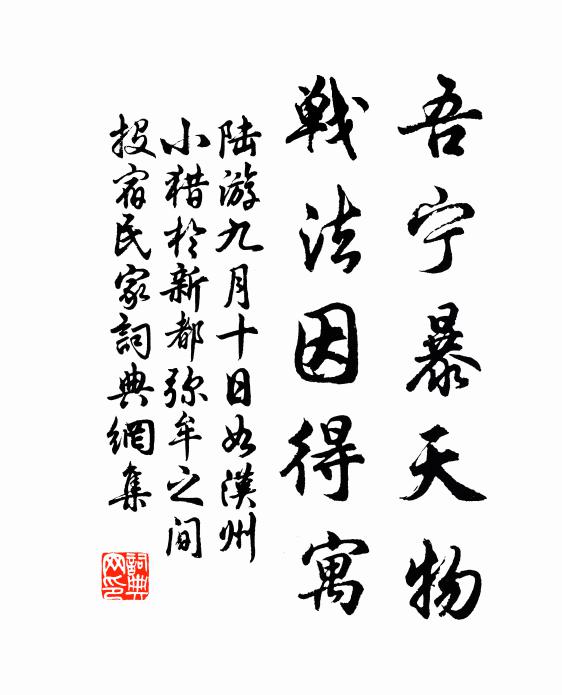 吾宁暴天物
戦法因得寓
陆游九月十日如漢州
小猎於新都弥牟之间
投宿民家詞典網集
詞典
网印